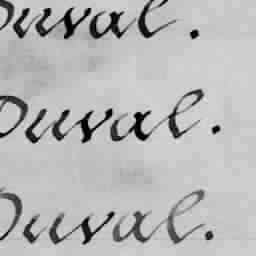 Duval.
Duval.
Duval.